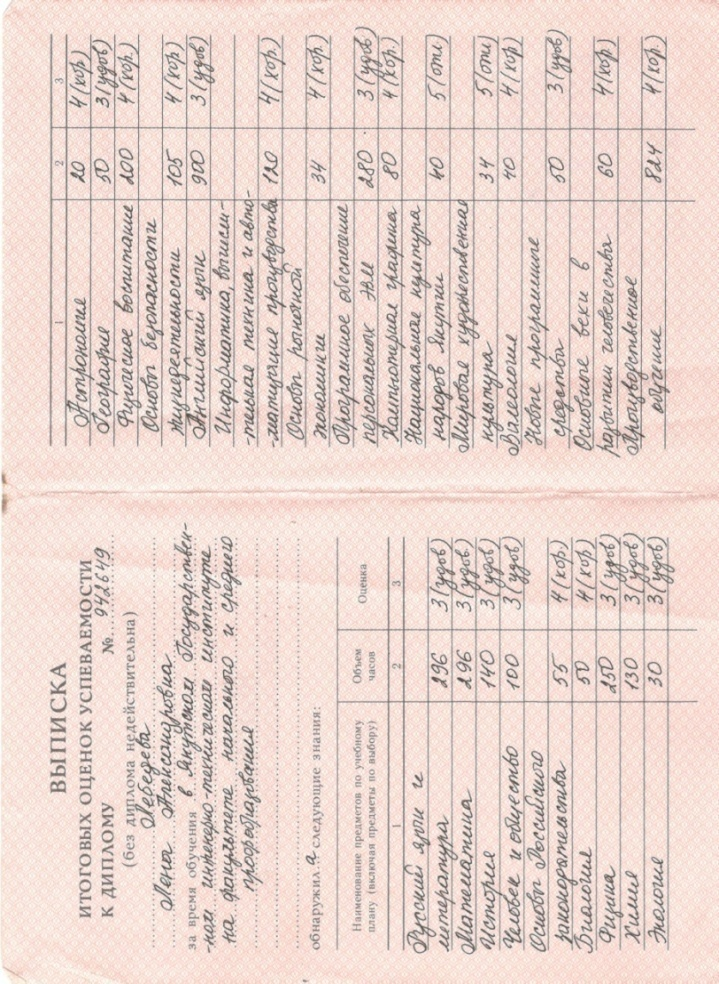 ВЫПИСКА
ИТОГОВЫХ ОЦЕНОК УСПЕВАЕМОСТИ
К ДИПЛОМУ № 942649
(без диплома недействительна)
Лебедева
Лена Александровна
за время обучения в Якутском Государствен-
-ном инженерно-техническом институте
на факультете начального и среднего
профобразования
обнаружил а следующие знания:
Наименование предметов по учебному плану (включая предметы по выбору) Объем часов Оценка
1 2 3
Русский язык и
литература 296 3 (удов)
Математика 296 3 (удов)
История 140 3 (удов)
Человек и общество 100 3 (удов)
Основы Российского
законодательства 55 4 (хор.)
Биология 50 4 (хор.)
Физика 250 3 (удов)
Химия 130 3 (удов)
Экология 30 3 (удов)
1 2 3
Астрономия 20 4 (хор)
География 50 3 (удов)
Физическое воспитание 200 4 (хор)
Основы безопасности
жизнедеятельности 105 4 (хор)
Английский язык 900 3 (удов)
Информатика, вычисли-
-тельная техника и авто-
-матизация производства 120 4 (хор.)
Основы рыночной
экономики 34 4 (хор)
Программное обеспечение
персональных ЭВМ 280 3 (удов)
Компьютерная графика 80 4 (хор.)
Национальная культура
народов Якутии 40 5 (отл)
Мировая художественная
культура 34 5 (отл)
Валеология 40 4 (хор)
Новые программные
средства 50 3 (удов)
Основные вехи в
развитии человечества 60 4 (хор.)
Производственное
обучение 824 4 (хор)